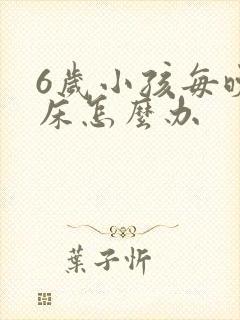 6歲小孩每晚
床怎麼办
葉子忻